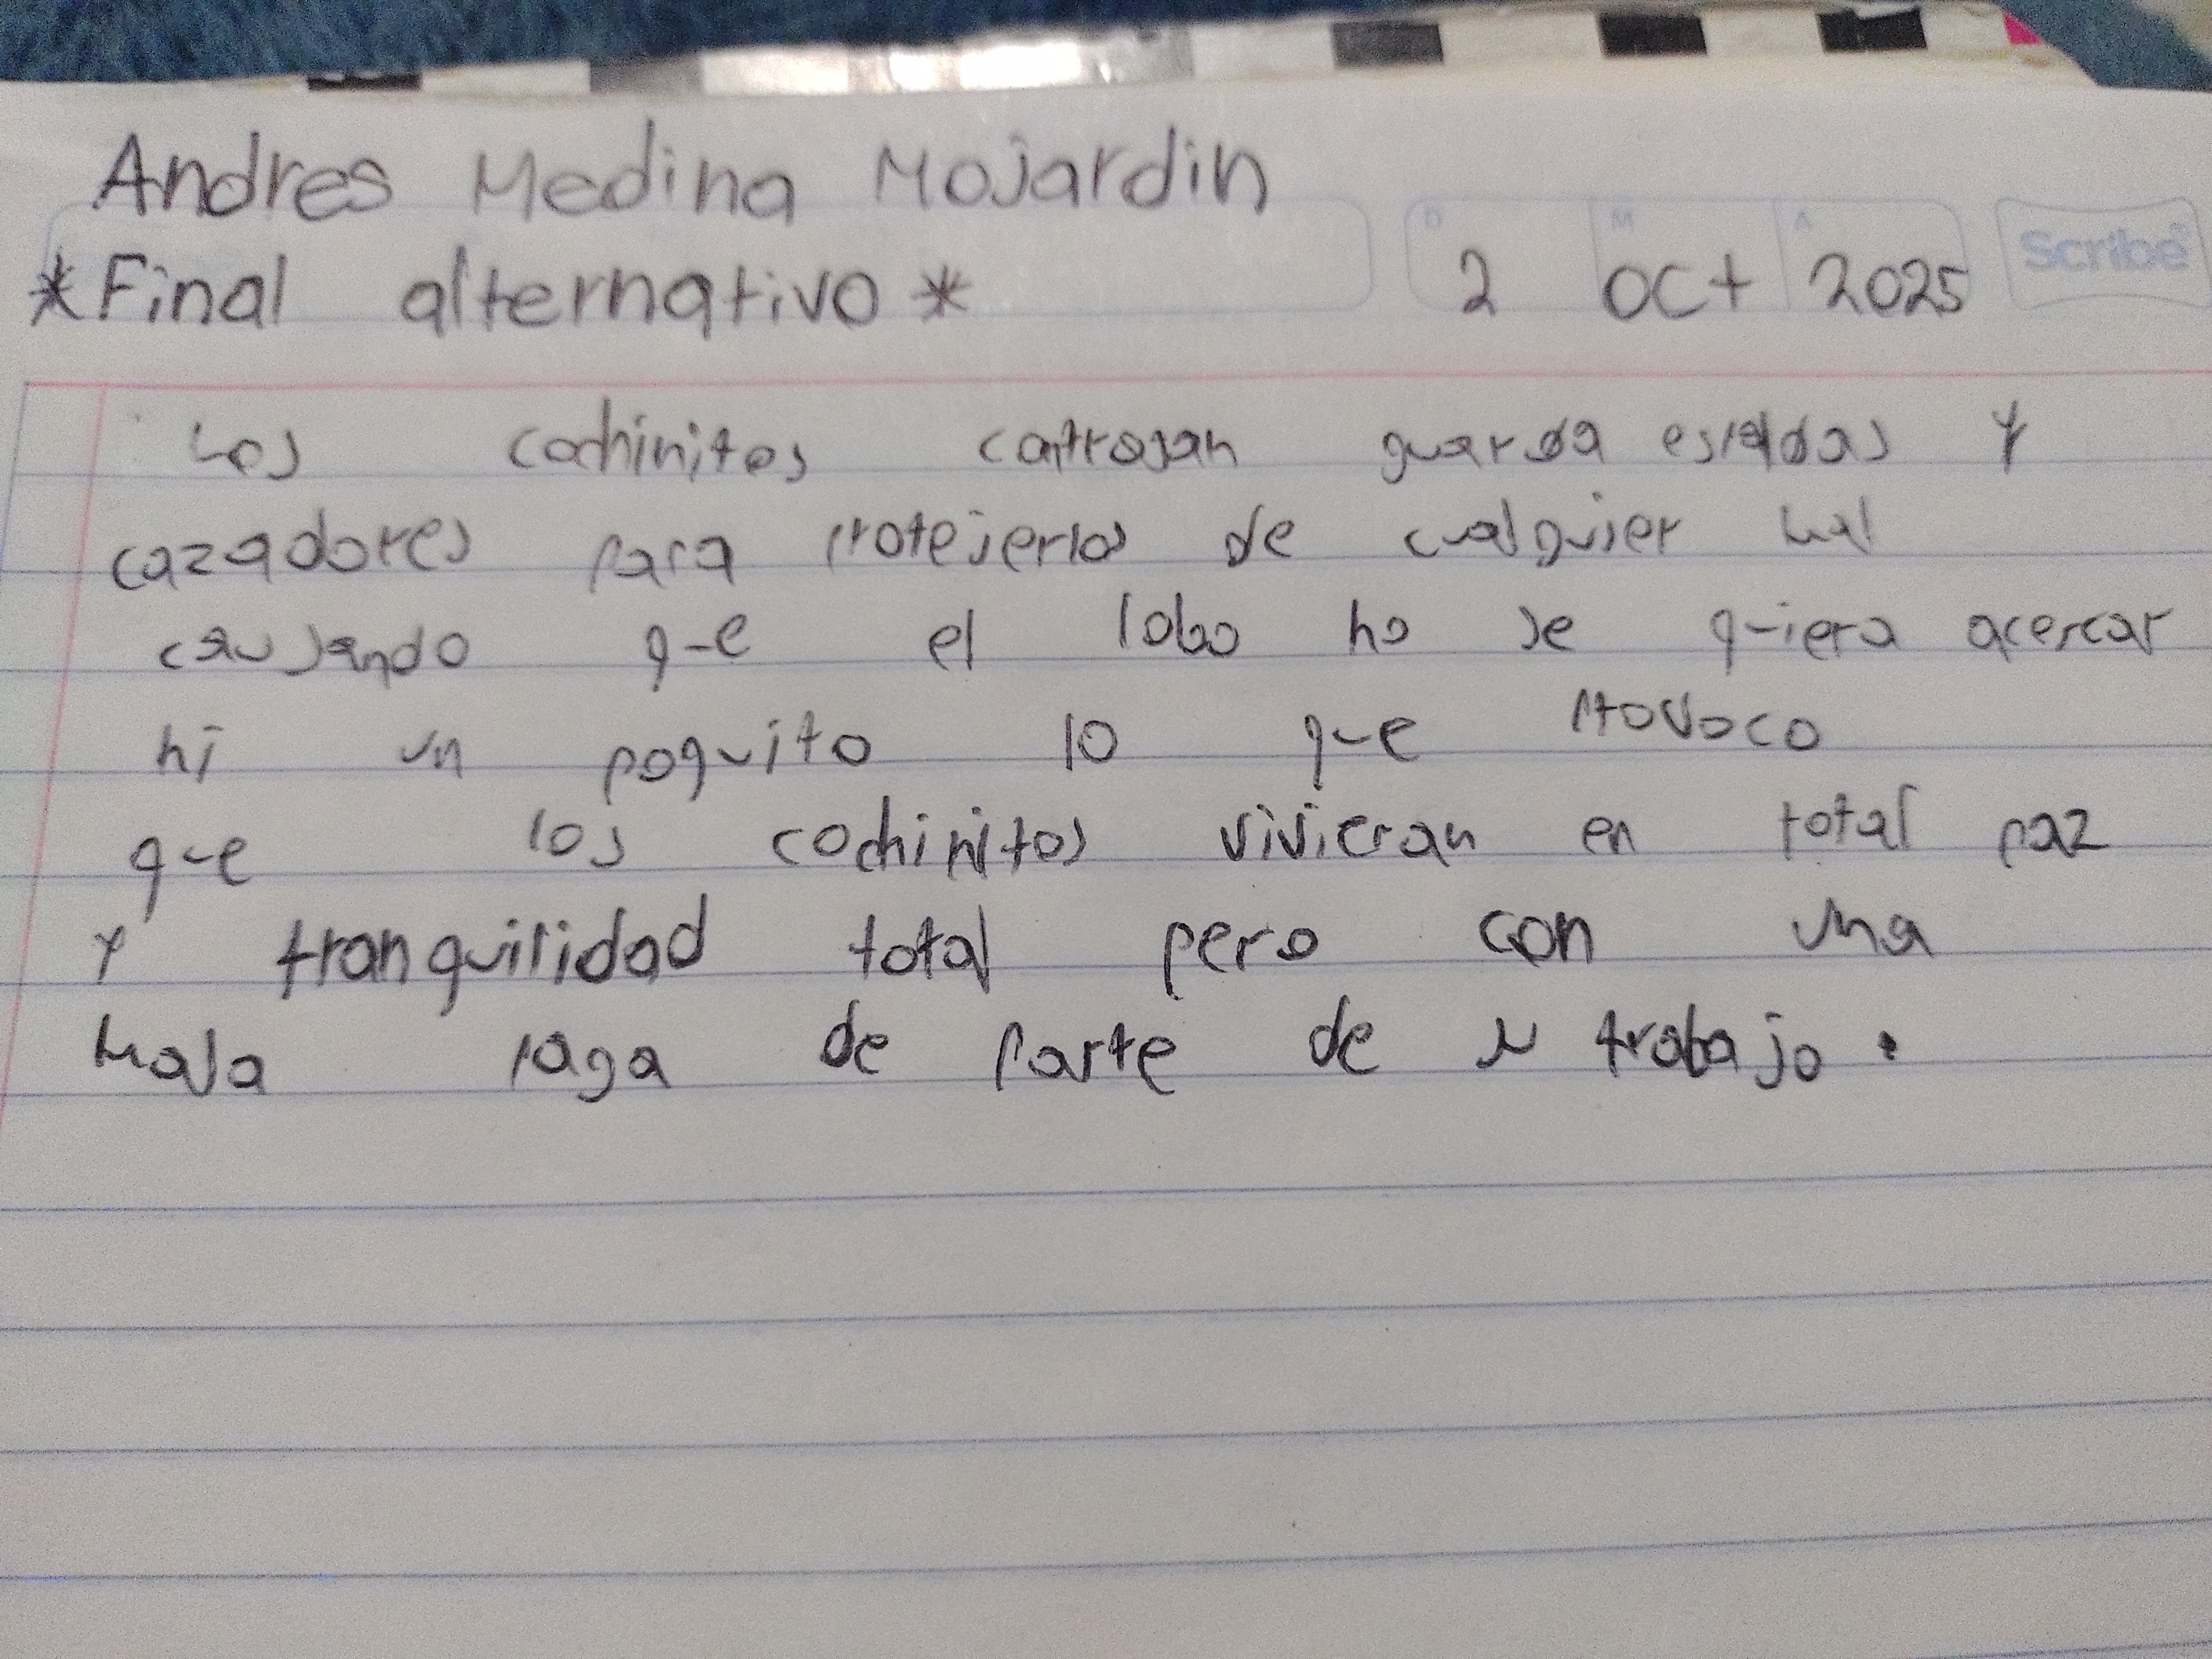 Andres Medina Mojardin
*Final alternativo* 2 oct 2025 Scribe
D M A
Los cochinitos guarda espaldas y
cazadores para protejerlos de cualquier mal
causando que el lobo no se quiera acercar
ni un poquito lo que provoco
que los cochinitos vivieran en total paz
y tranquilidad total pero con una
mala paga de parte de su trabajo.